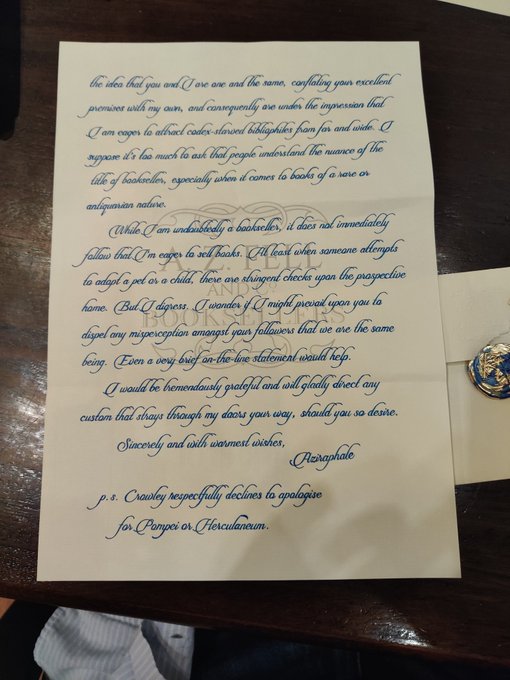 the idea that you and I are one and the same, conflating your excellent
premises with my own, and consequently are under the impression that
I am eager to attract codex-starved bibliophiles from far and wide. I
suppose it's too much to ask that people understand the nuance of the
title of bookseller, especially when it comes to books of a rare or
antiquarian nature.
While I am undoubtedly a bookseller, it does not immediately
follow that I'm eager to sell books. At least when someone attempts
to adopt a pet or a child, there are stringent checks upon the prospective
home. But I digress. I wonder if I might prevail upon you to
dispel any misperception amongst your followers that we are the same
being. Even a very brief on-the-line statement would help.
I would be tremendously grateful and will gladly direct any
custom that strays through my doors your way, should you so desire.
Sincerely and with warmest wishes,
Aziraphale
p.s. Crowley respectfully declines to apologise
for Pompei or Herculaneum.
A. Z. FELL
AND CO
BOOKSELLERS